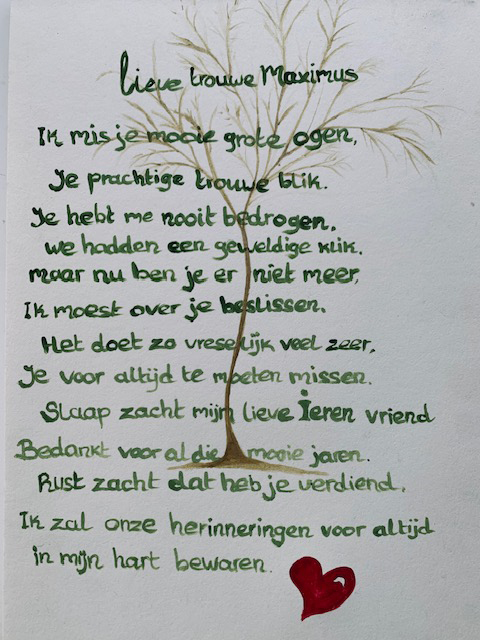 lieve trouwe Maximus
Ik mis je mooie grote ogen,
Je prachtige trouwe blik.
Je hebt me nooit bedrogen,
we hadden een geweldige klik.
maar nu ben je er niet meer,
Ik moest over je beslissen.
Het doet zo vreselijk veel zeer,
Je voor altijd te moeten missen.
Slaap zacht mijn lieve Ieren vriend
Bedankt voor al die mooie jaren.
Rust zacht dat heb je verdiend,
Ik zal onze herinneringen voor altijd
in mijn hart bewaren.